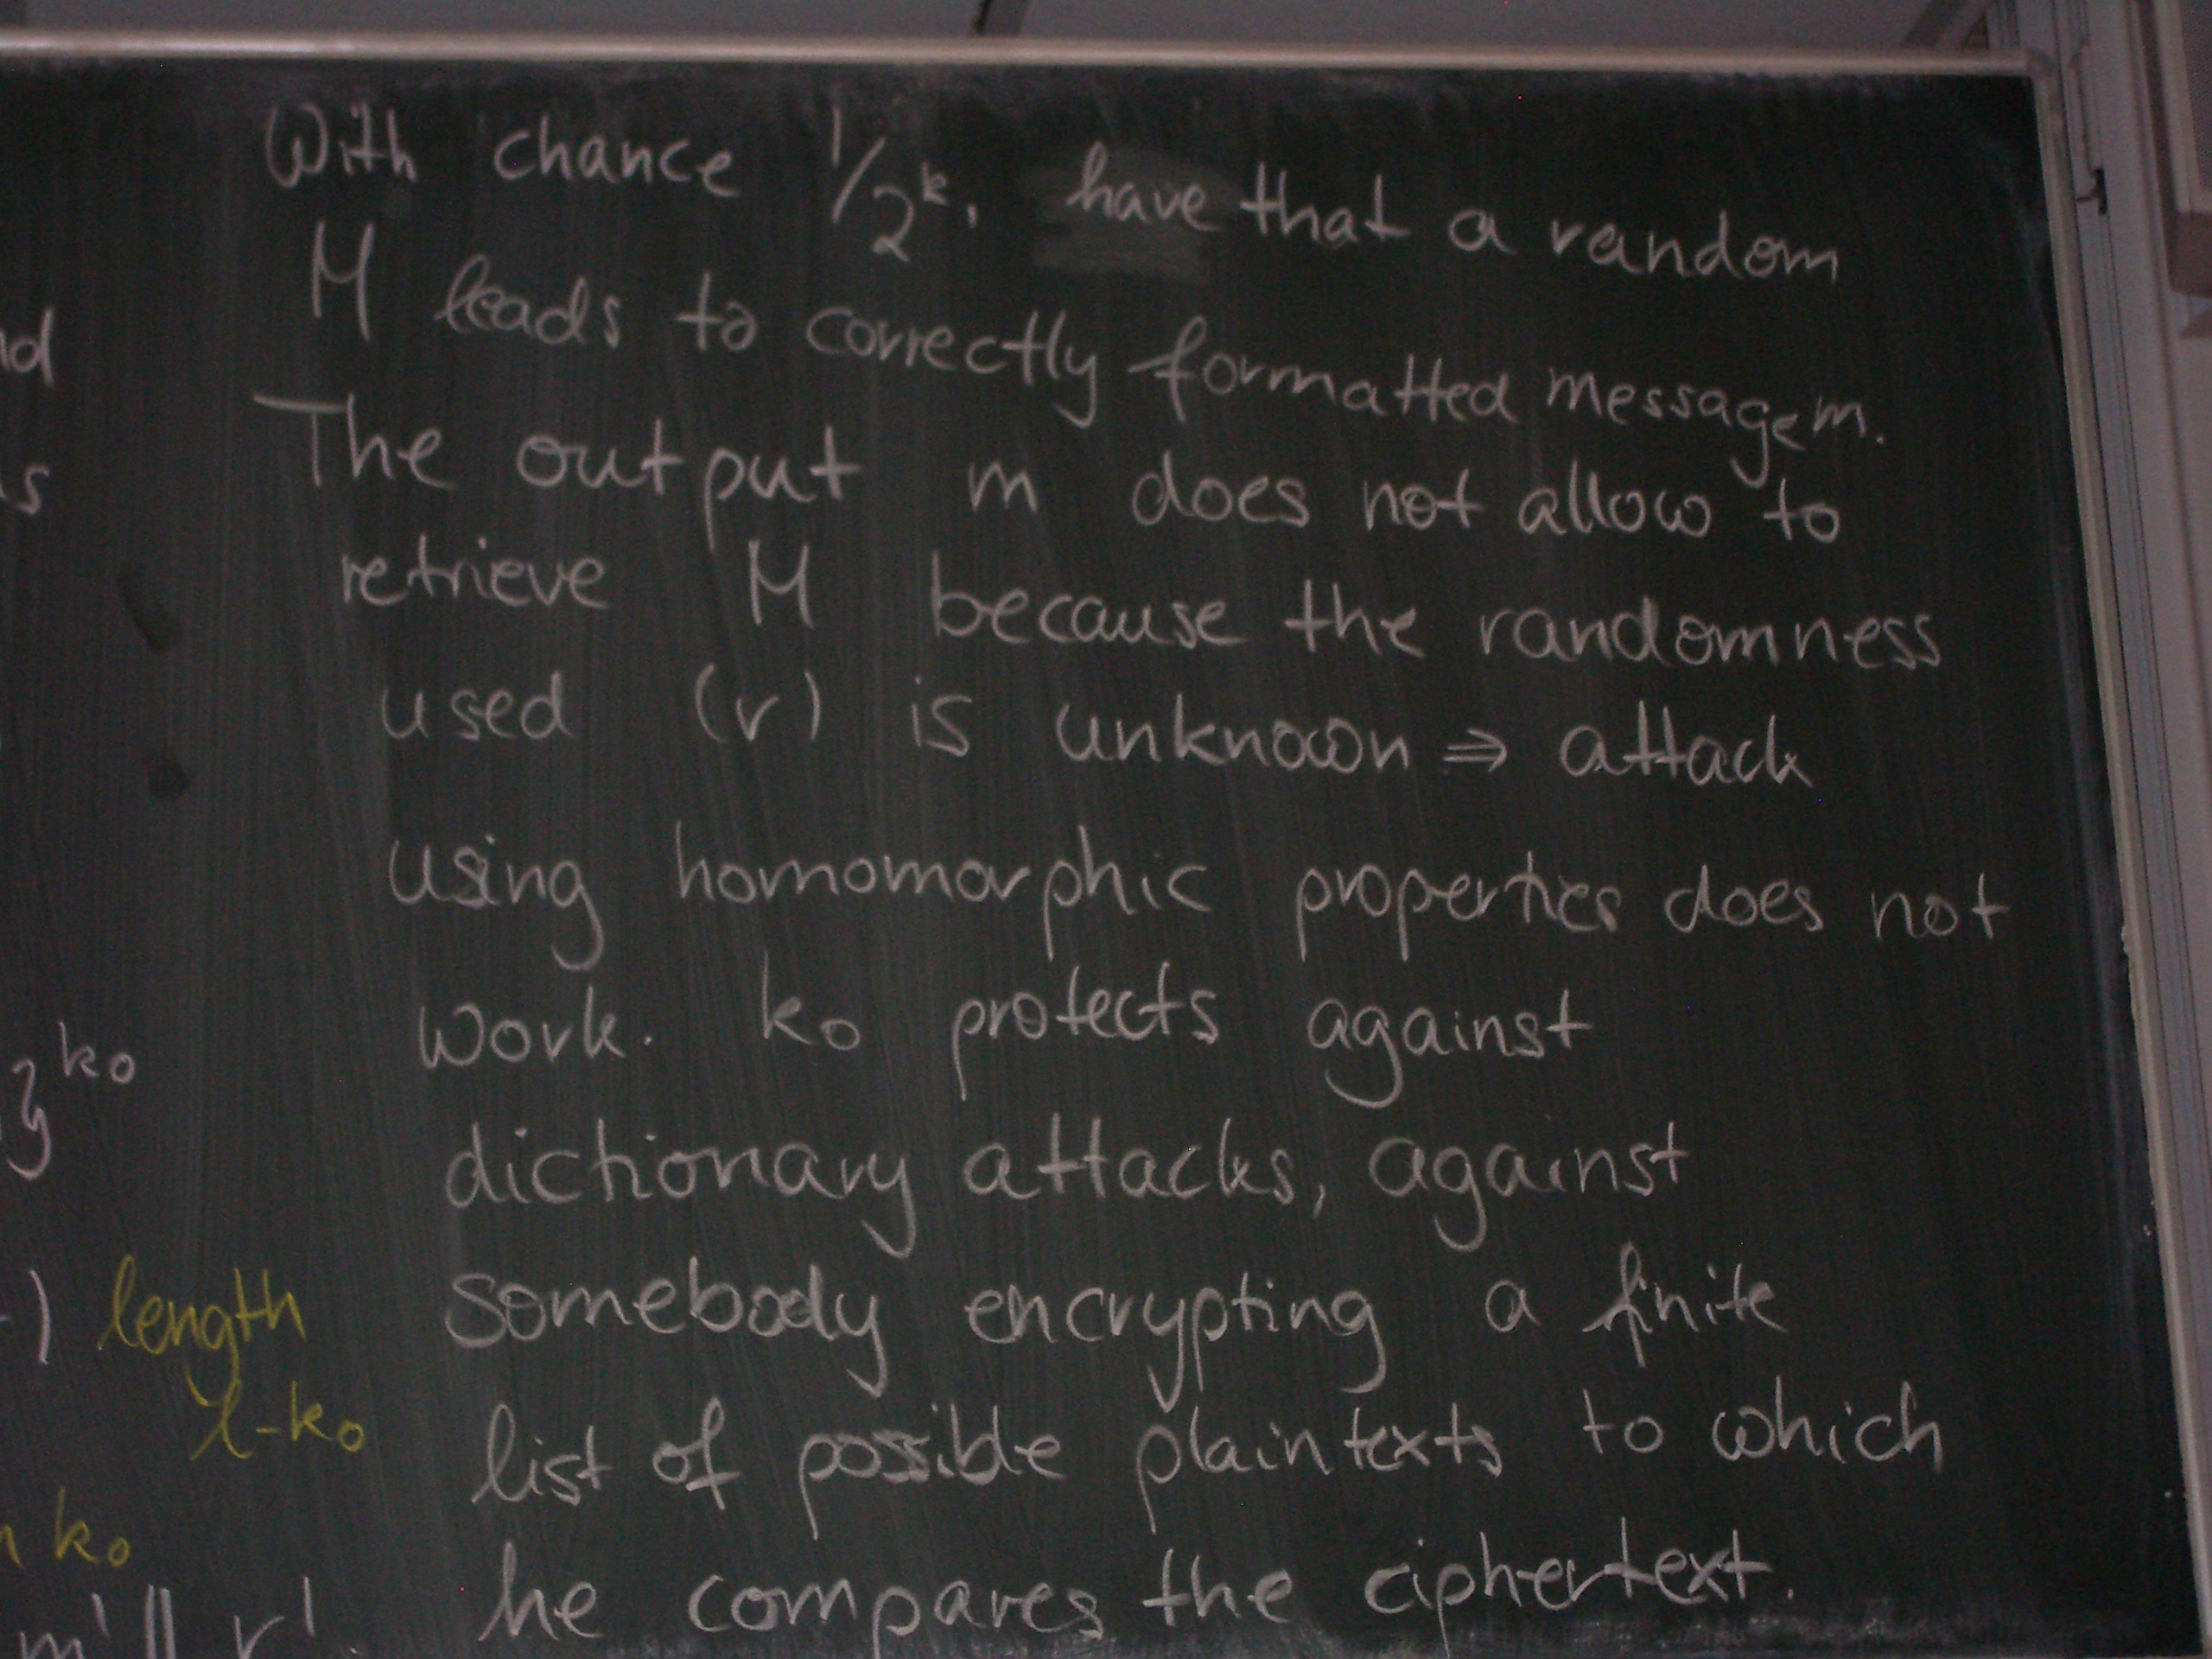 With chance 1/2^k, have that a random
M leads to correctly formatted message m.
The output m does not allow to
retrieve M because the randomness
used (r) is unknown ⇒ attack
using homomorphic properties does not
work. k₀ protects against
dictionary attacks, against
somebody encrypting a finite
list of possible plaintexts to which
he compares the ciphertext.
}^k₀
) length
l-k₀
k₀
m' || r'